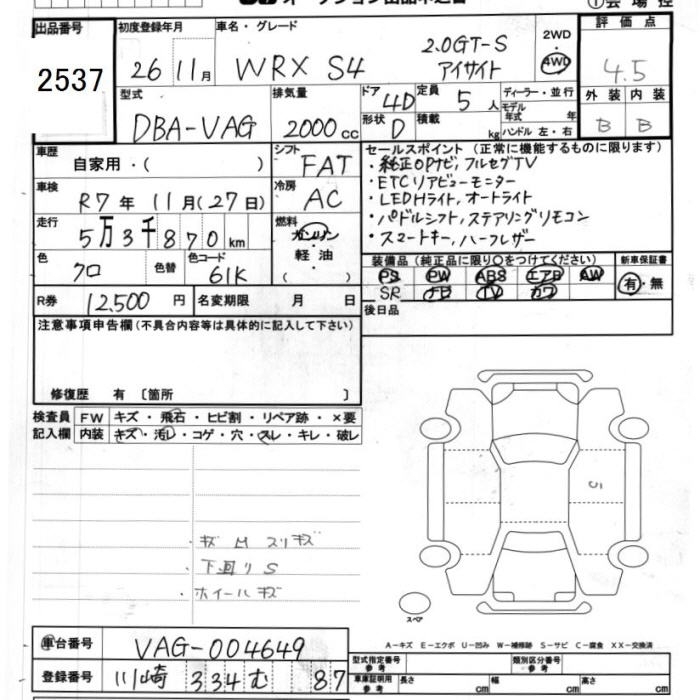 オークション出品申込書
①会場控
出品番号
2537
初度登録年月
26年11月
車名・グレード
WRX S4
2.0GT-S
アイサイト
2WD
4WD
評価点
4.5
型式
DBA-VAG
排気量
2000cc
ドア
4D
形状
D
定員
5人
積載
kg
ディーラー・並行
モデル年式 年
ハンドル 左・右
外装 内装
B B
車歴
自家用・( )
シフト
FAT
車検
R7年11月(27日)
冷房
AC
走行
5万3千870km
燃料
ガソリン
・
軽油
( )
色
クロ
色替
色コード
61K
R券
12,500円
名変期限 月 日
セールスポイント(正常に機能するものに限ります)
・純正OPナビ,フルセグTV
・ETCリアビューモニター
・LEDHライト,オートライト
・パドルシフト,ステアリングリモコン
・スマートキー,ハーフレザー
装備品(純正品に限り○をつけてください)
新車保証書
PS PW ABS エアB AW
SR ナビ TV カワ
有・無
後日品
注意事項申告欄(不具合内容等は具体的に記入して下さい)
修復歴 有〔箇所 〕
検査員記入欄
FW キズ・飛石・ヒビ割・リペア跡・×要
内装 キズ・汚レ・コゲ・穴・スレ・キレ・破レ
・キズ M スリキズ
・下回り S
・ホイールキズ
スペア
A-キズ E-エクボ U-凹み W-補修跡 S-サビ C-腐食 XX-交換済
車台番号
VAG-004649
登録番号
川崎 334 む 87
型式指定番号
参考
類別区分番号
参考
車庫証明用
参考
長さ cm
幅 cm
高さ cm